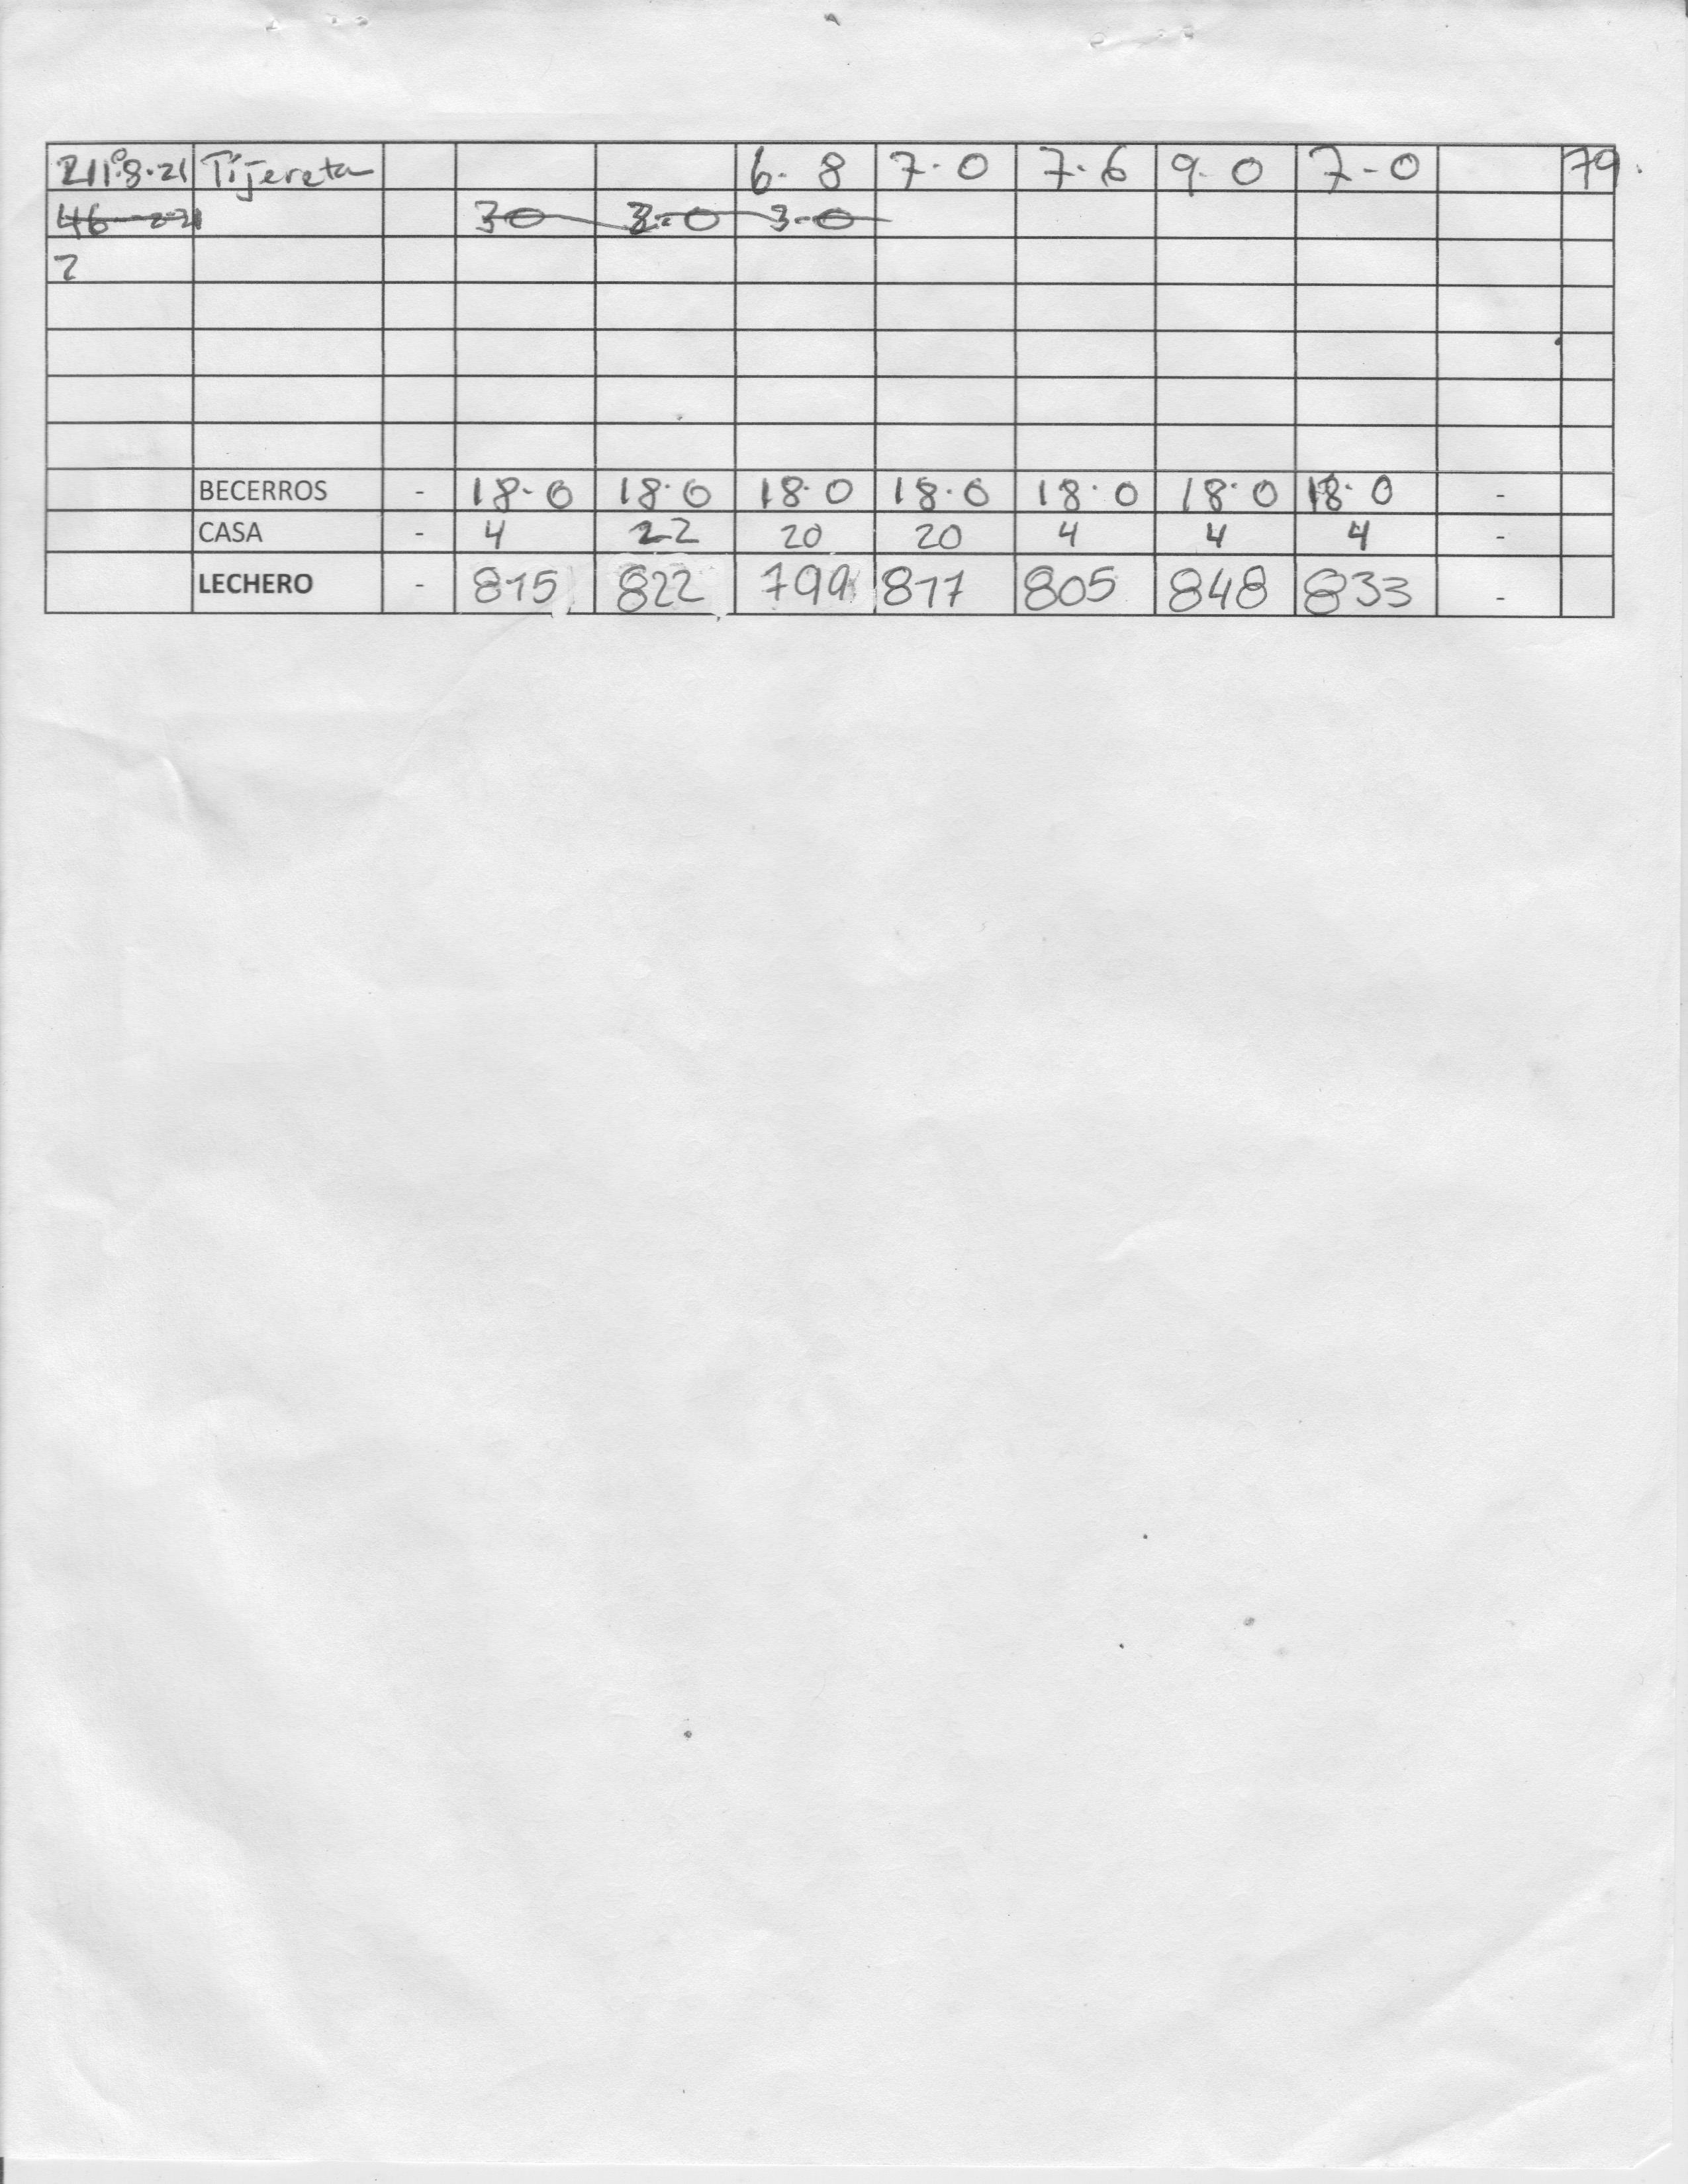 211°8.21 Tijereta 6-8 7.0 7.6 9.0 7-0 79.
46 30 3-0 3-0
2
BECERROS - 18-0 18.0 18.0 18.0 18.0 18.0 18.0 -
CASA - 4 22 20 20 4 4 4 -
LECHERO - 815 822 799 817 805 848 833 -